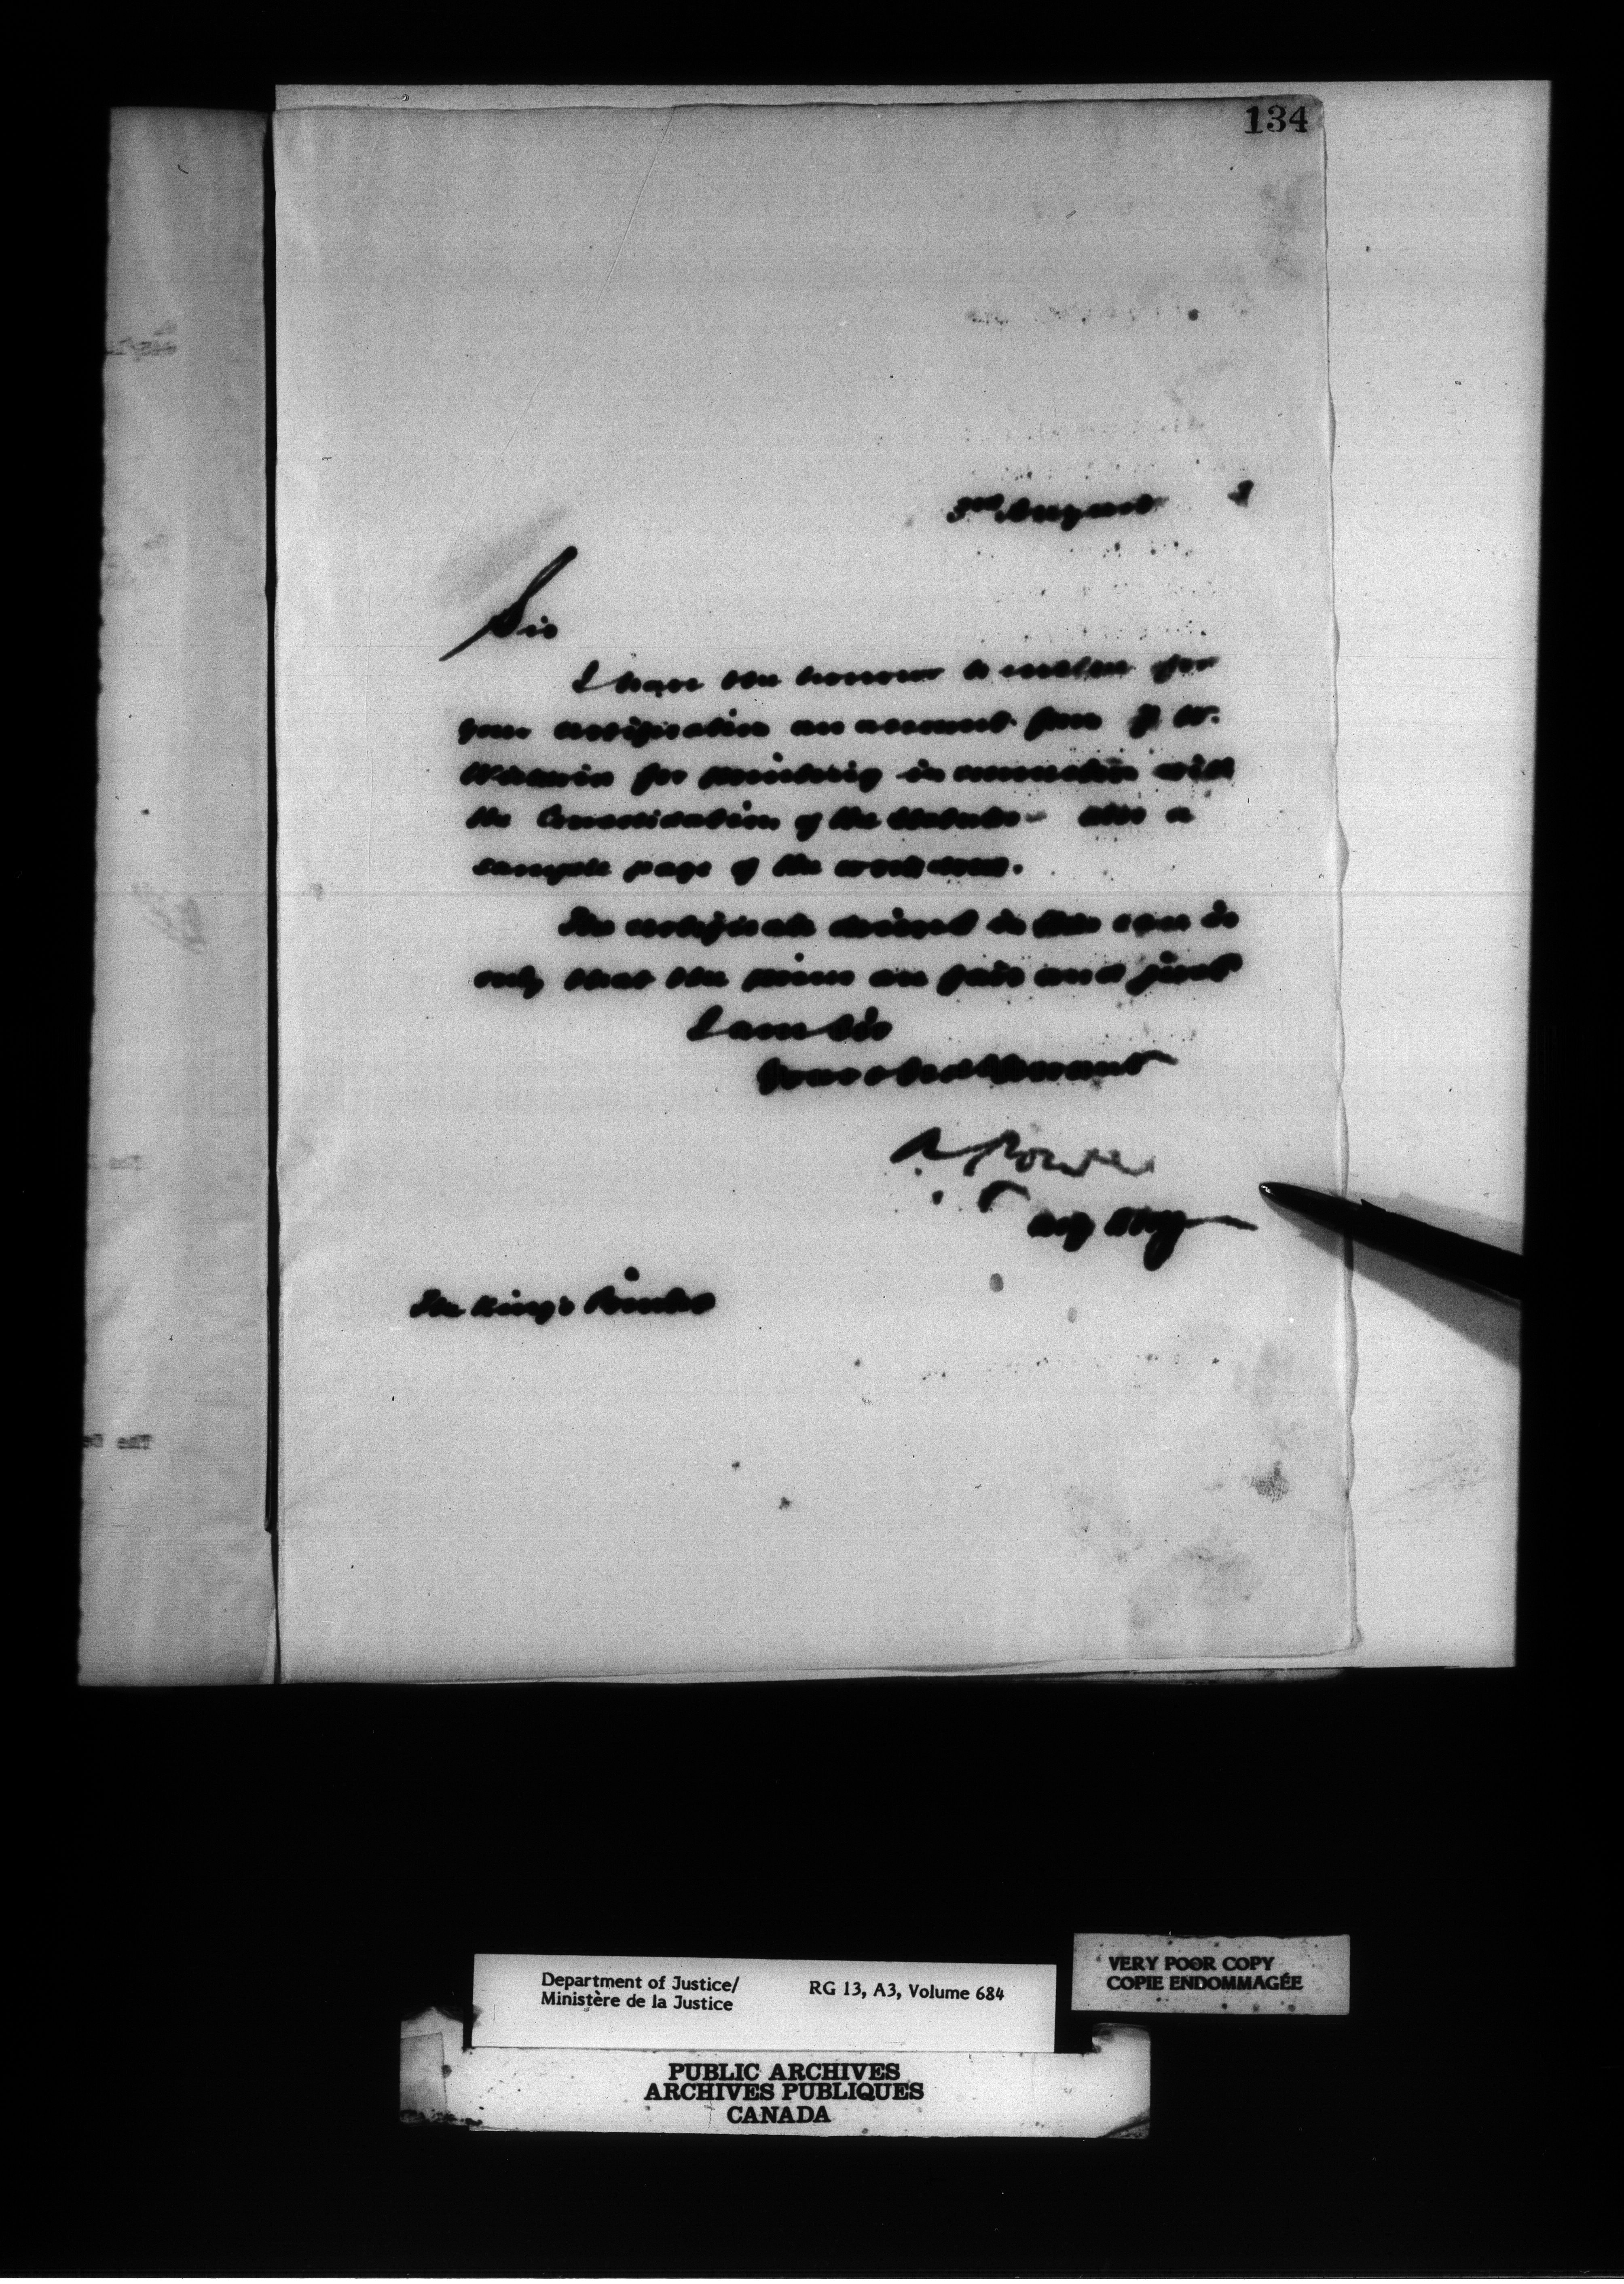 134
3rd August 3
Sir
I have the honour to enclose for
your certification an account from J. W.
for printing in connection with
the Consolidation of the Statutes - also a
sample page of the work done.
The certificate desired in this case is
only that the prices are fair and just
I am Sir
Your obedt Servant
A Power
The King's Printer
Department of Justice/
Ministère de la Justice
RG 13, A3, Volume 684
VERY POOR COPY
COPIE ENDOMMAGÉE
PUBLIC ARCHIVES
ARCHIVES PUBLIQUES
CANADA